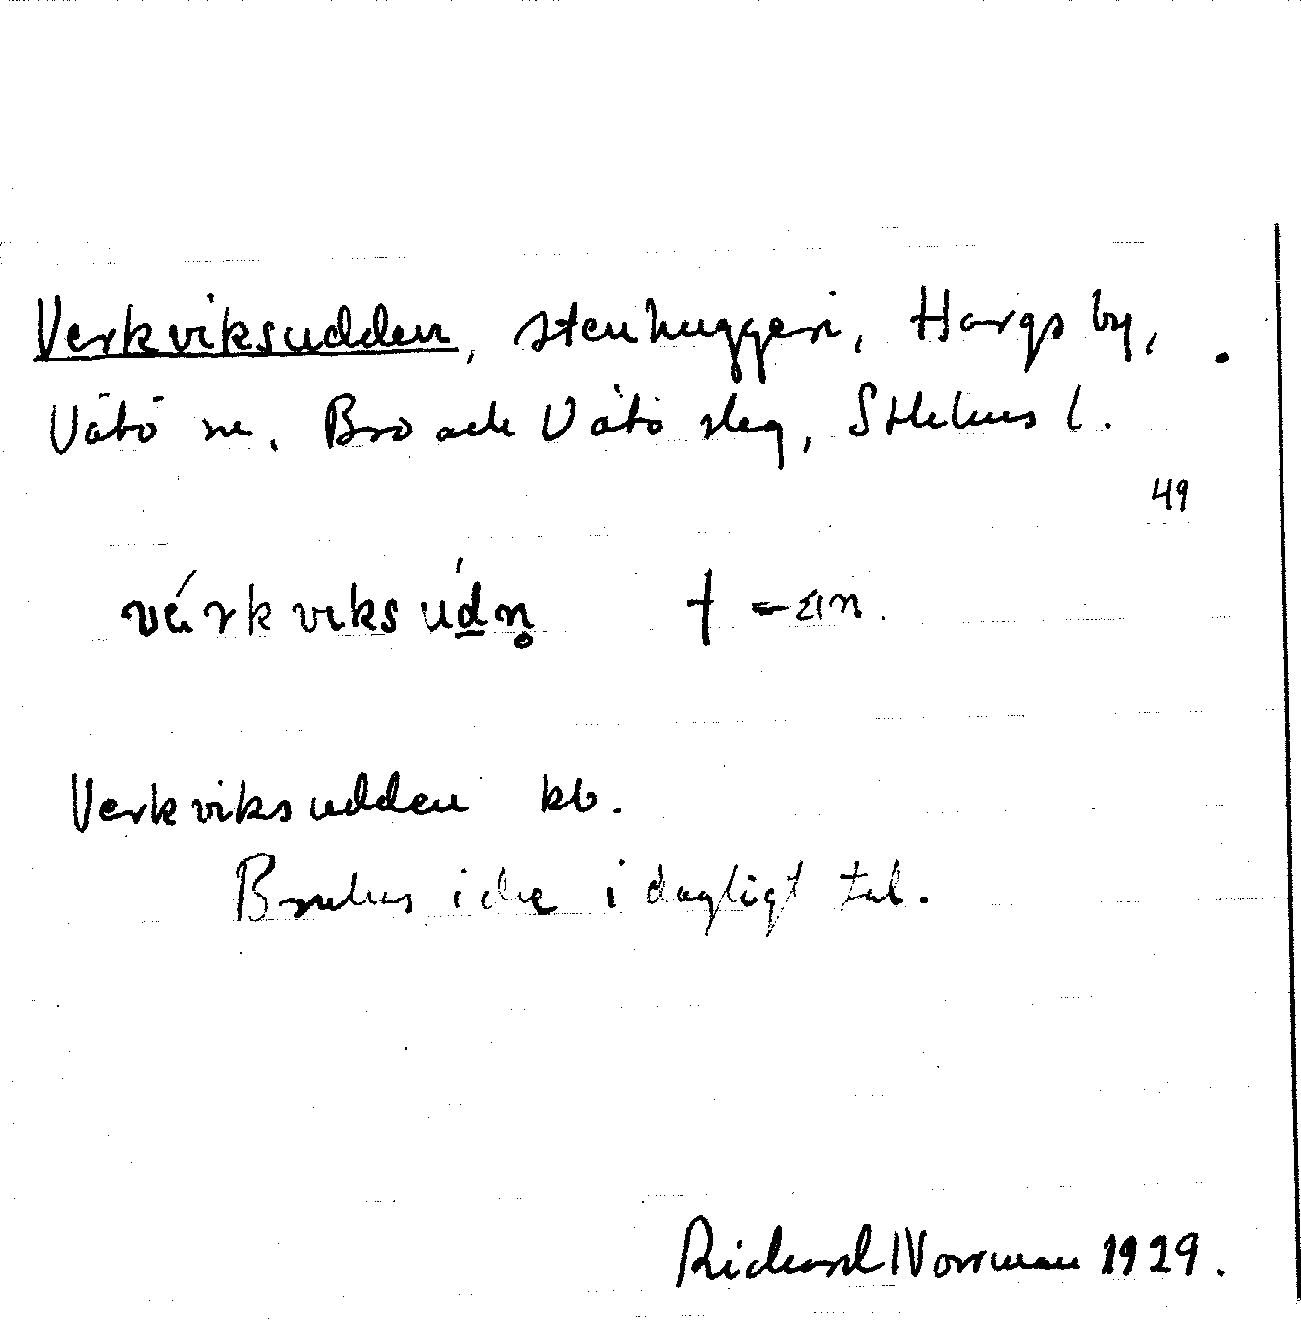 Verkviksudden, stenhuggeri, Hargs by,
Vätö sn. Bro och Vätö sklg, Sthlms l.
49
vä́rkviksúdn̥ † =än.
Verkviksudden kb.
Brukas icke i dagligt tal.
Richard Norrman 1929.